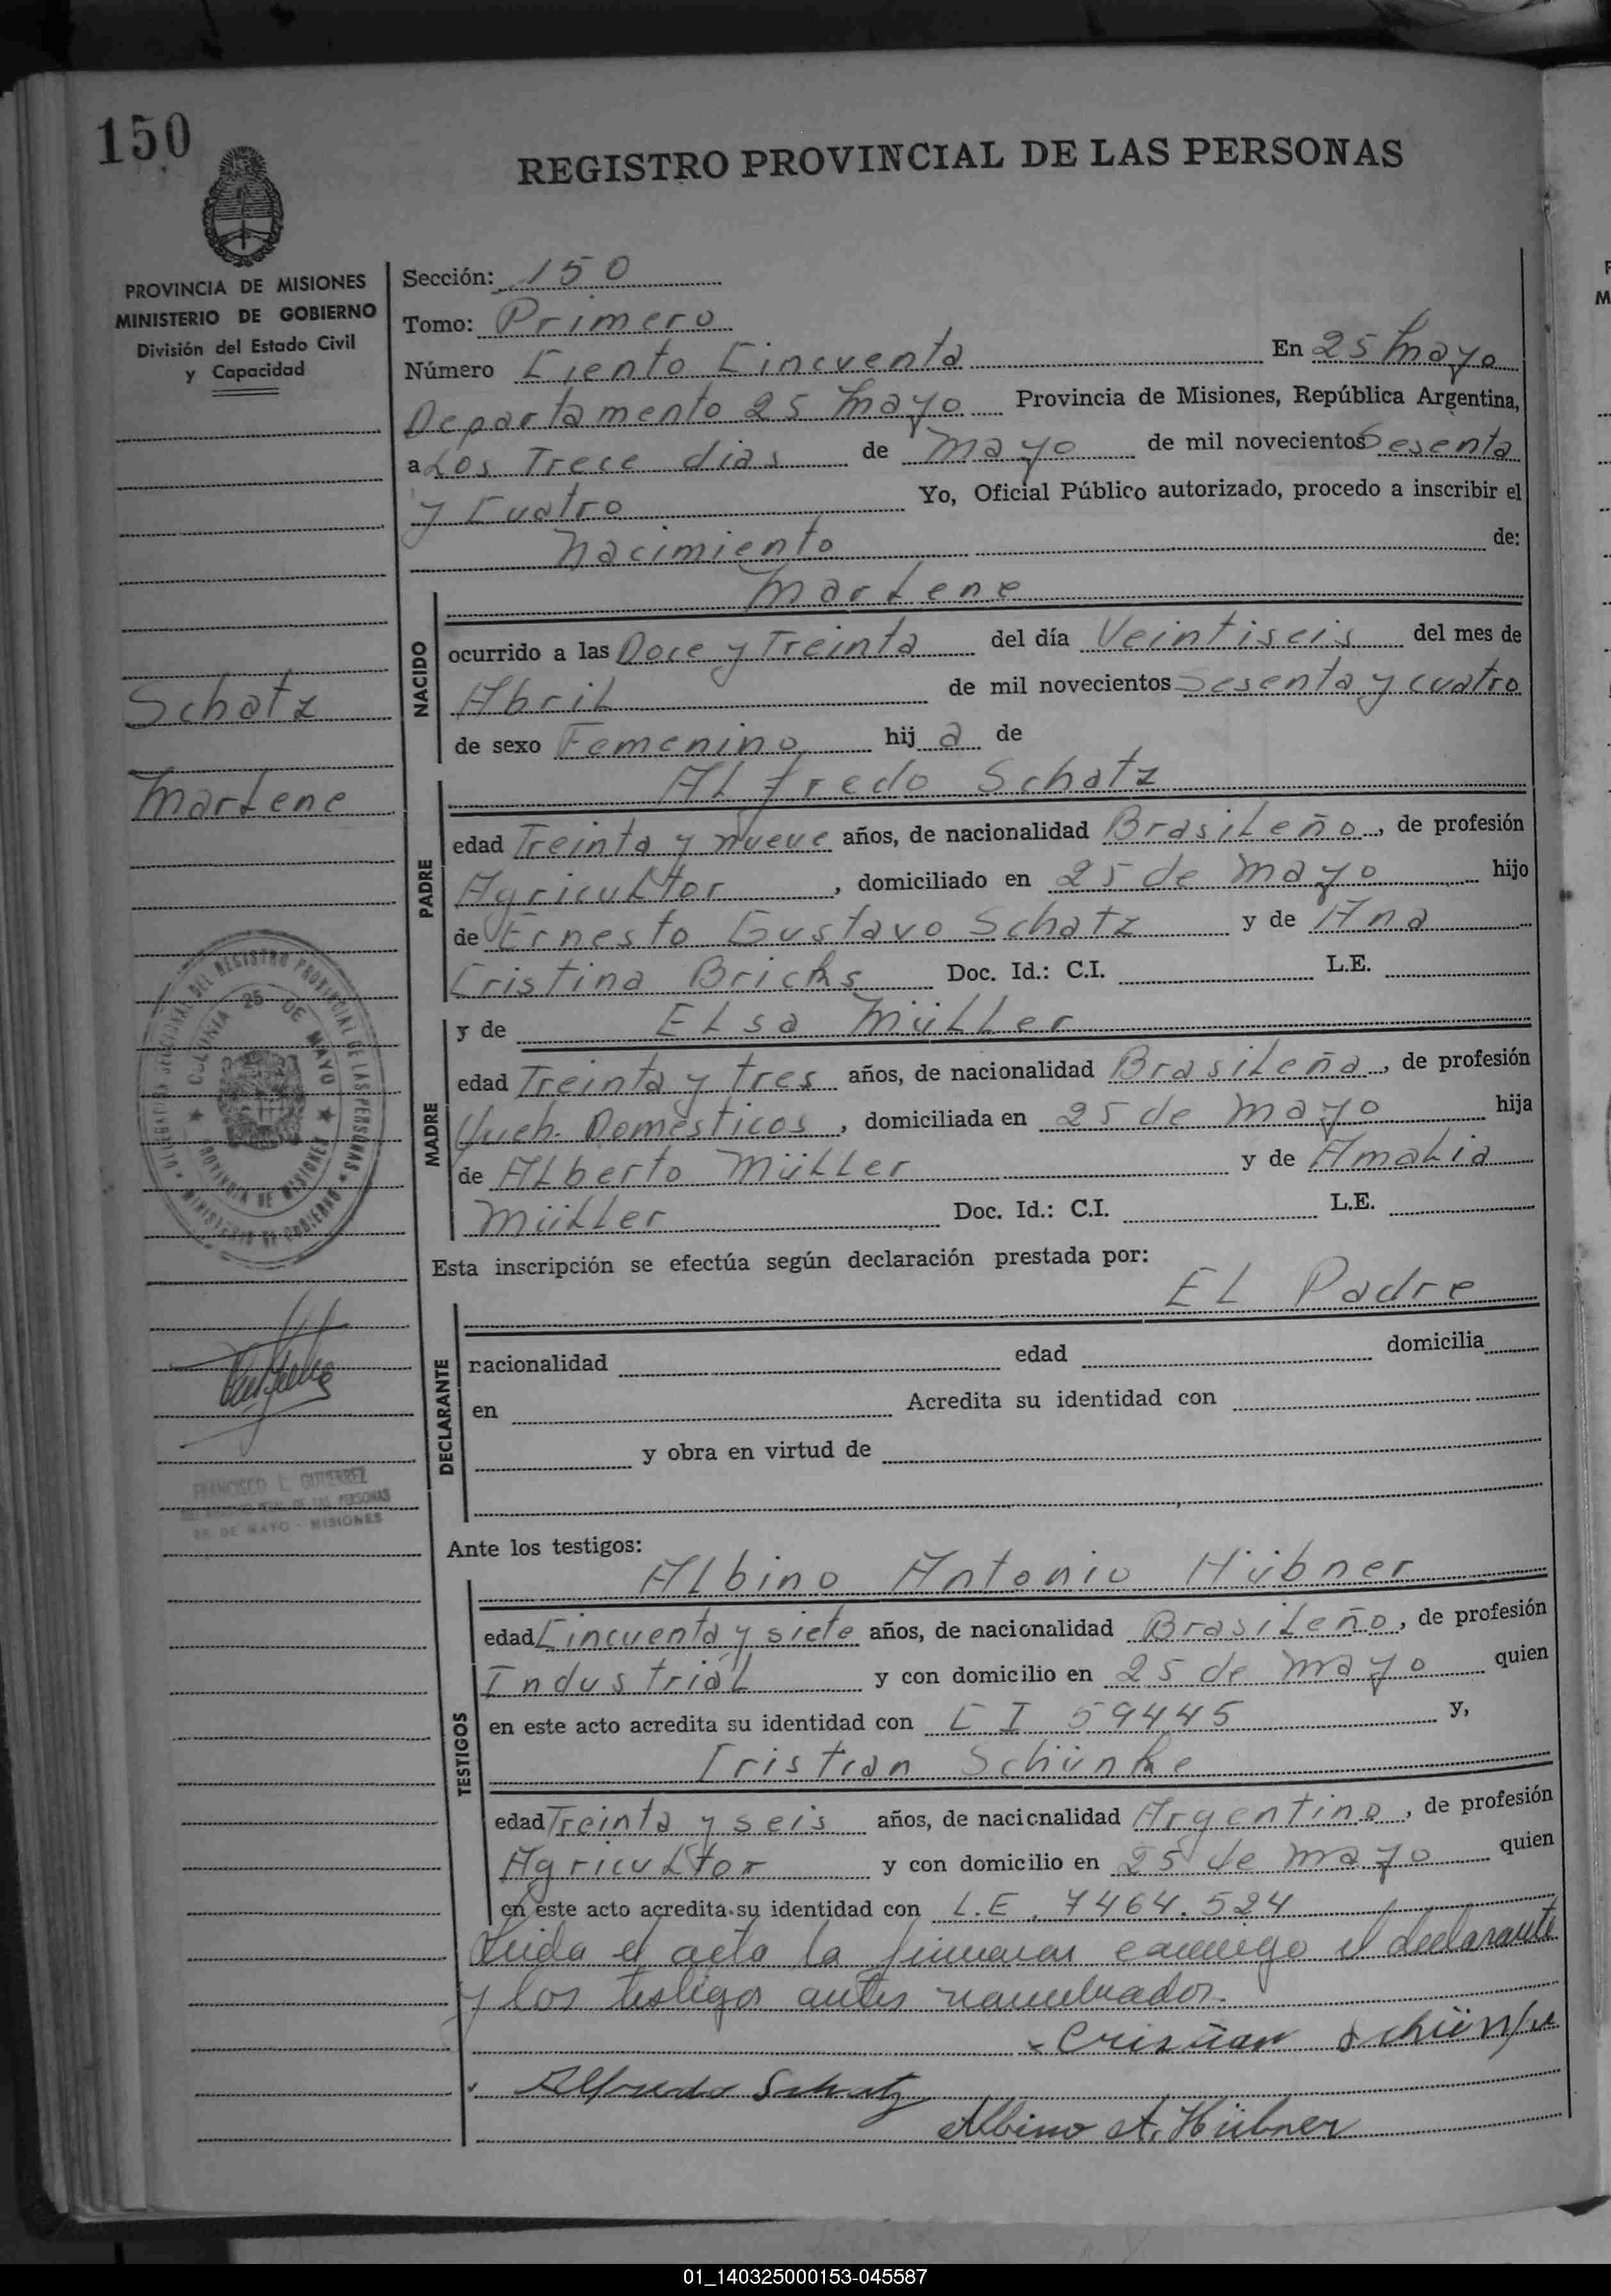 150
REGISTRO PROVINCIAL DE LAS PERSONAS
PROVINCIA DE MISIONES
MINISTERIO DE GOBIERNO
División del Estado Civil
y Capacidad
Sección: 150
Tomo: Primero
Número Ciento Cincuenta En 25 Mayo
Departamento 25 Mayo Provincia de Misiones, República Argentina,
a Los Trece dias de Mayo de mil novecientos Sesenta
y Cuatro Yo, Oficial Público autorizado, procedo a inscribir el
Nacimiento de:
Marlene
NACIDO
ocurrido a las Doce y Treinta del día Veintiseis del mes de
Abril de mil novecientos Sesenta y cuatro
de sexo Femenino hij a de
Schatz
Marlene
PADRE
Alfredo Schatz
edad Treinta y Nueve años, de nacionalidad Brasileño, de profesión
Agricultor, domiciliado en 25 de Mayo hijo
de Ernesto Gustavo Schatz y de Ana
Cristina Bricks Doc. Id.: C.I. L.E.
MADRE
y de Elsa Müller
edad Treinta y tres años, de nacionalidad Brasileña, de profesión
Queh. Domésticos, domiciliada en 25 de Mayo hija
de Alberto Müller y de Amalia
Müller Doc. Id.: C.I. L.E.
DEL REGISTRO PROVINCIAL DE LAS PERSONAS
COLONIA 25 DE MAYO
PROVINCIA DE MISIONES
MINISTERIO DE GOBIERNO
Esta inscripción se efectúa según declaración prestada por:
El Padre
DECLARANTE
nacionalidad edad domicilia
en Acredita su identidad con
y obra en virtud de
FRANCISCO L. GUTIERREZ
DE LAS PERSONAS
25 DE MAYO - MISIONES
Ante los testigos:
TESTIGOS
Albino Antonio Hübner
edad Cincuenta y siete años, de nacionalidad Brasileño, de profesión
Industrial y con domicilio en 25 de Mayo quien
en este acto acredita su identidad con C I 59445 y,
Cristian Schünke
edad Treinta y seis años, de nacionalidad Argentino, de profesión
Agricultor y con domicilio en 25 de Mayo quien
en este acto acredita su identidad con L.E. 7464.524
Leida el acta la firmaron conmigo el declarante
y los testigos antes nombrados.
Cristian Schünke
Alfredo Schatz
Albino A. Hübner
01_140325000153-045587